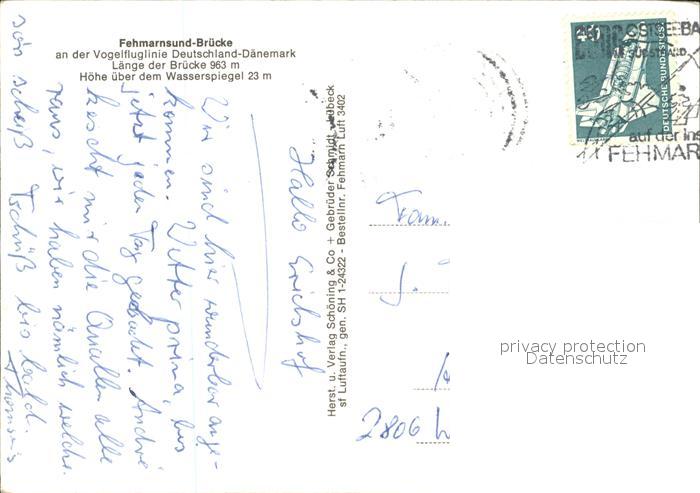 Fehmarnsund-Brücke
an der Vogelfluglinie Deutschland-Dänemark
Länge der Brücke 963 m
Höhe über dem Wasserspiegel 23 m
Hallo Erichshof
Wir sind hier wunderbar ange-
kommen. Wetter prima, bis
jetzt jeden Tag gebadet. André
kescht mir die Quallen alle
raus, wir haben nämlich welche.
scheiß Tschüß bis bald.
Thomas
Herst. u. Verlag Schöning & Co + Gebrüder Schmidt, Lübeck
sf Luftaufn., gen. SH 1-24322 - Bestellnr. Fehmarn Luft 3402
40
DEUTSCHE BUNDESPOST
OSTSEEBA
SÜDSTRAND
auf der Ins
FEHMAR
Fam.
J.
2806
privacy protection
Datenschutz